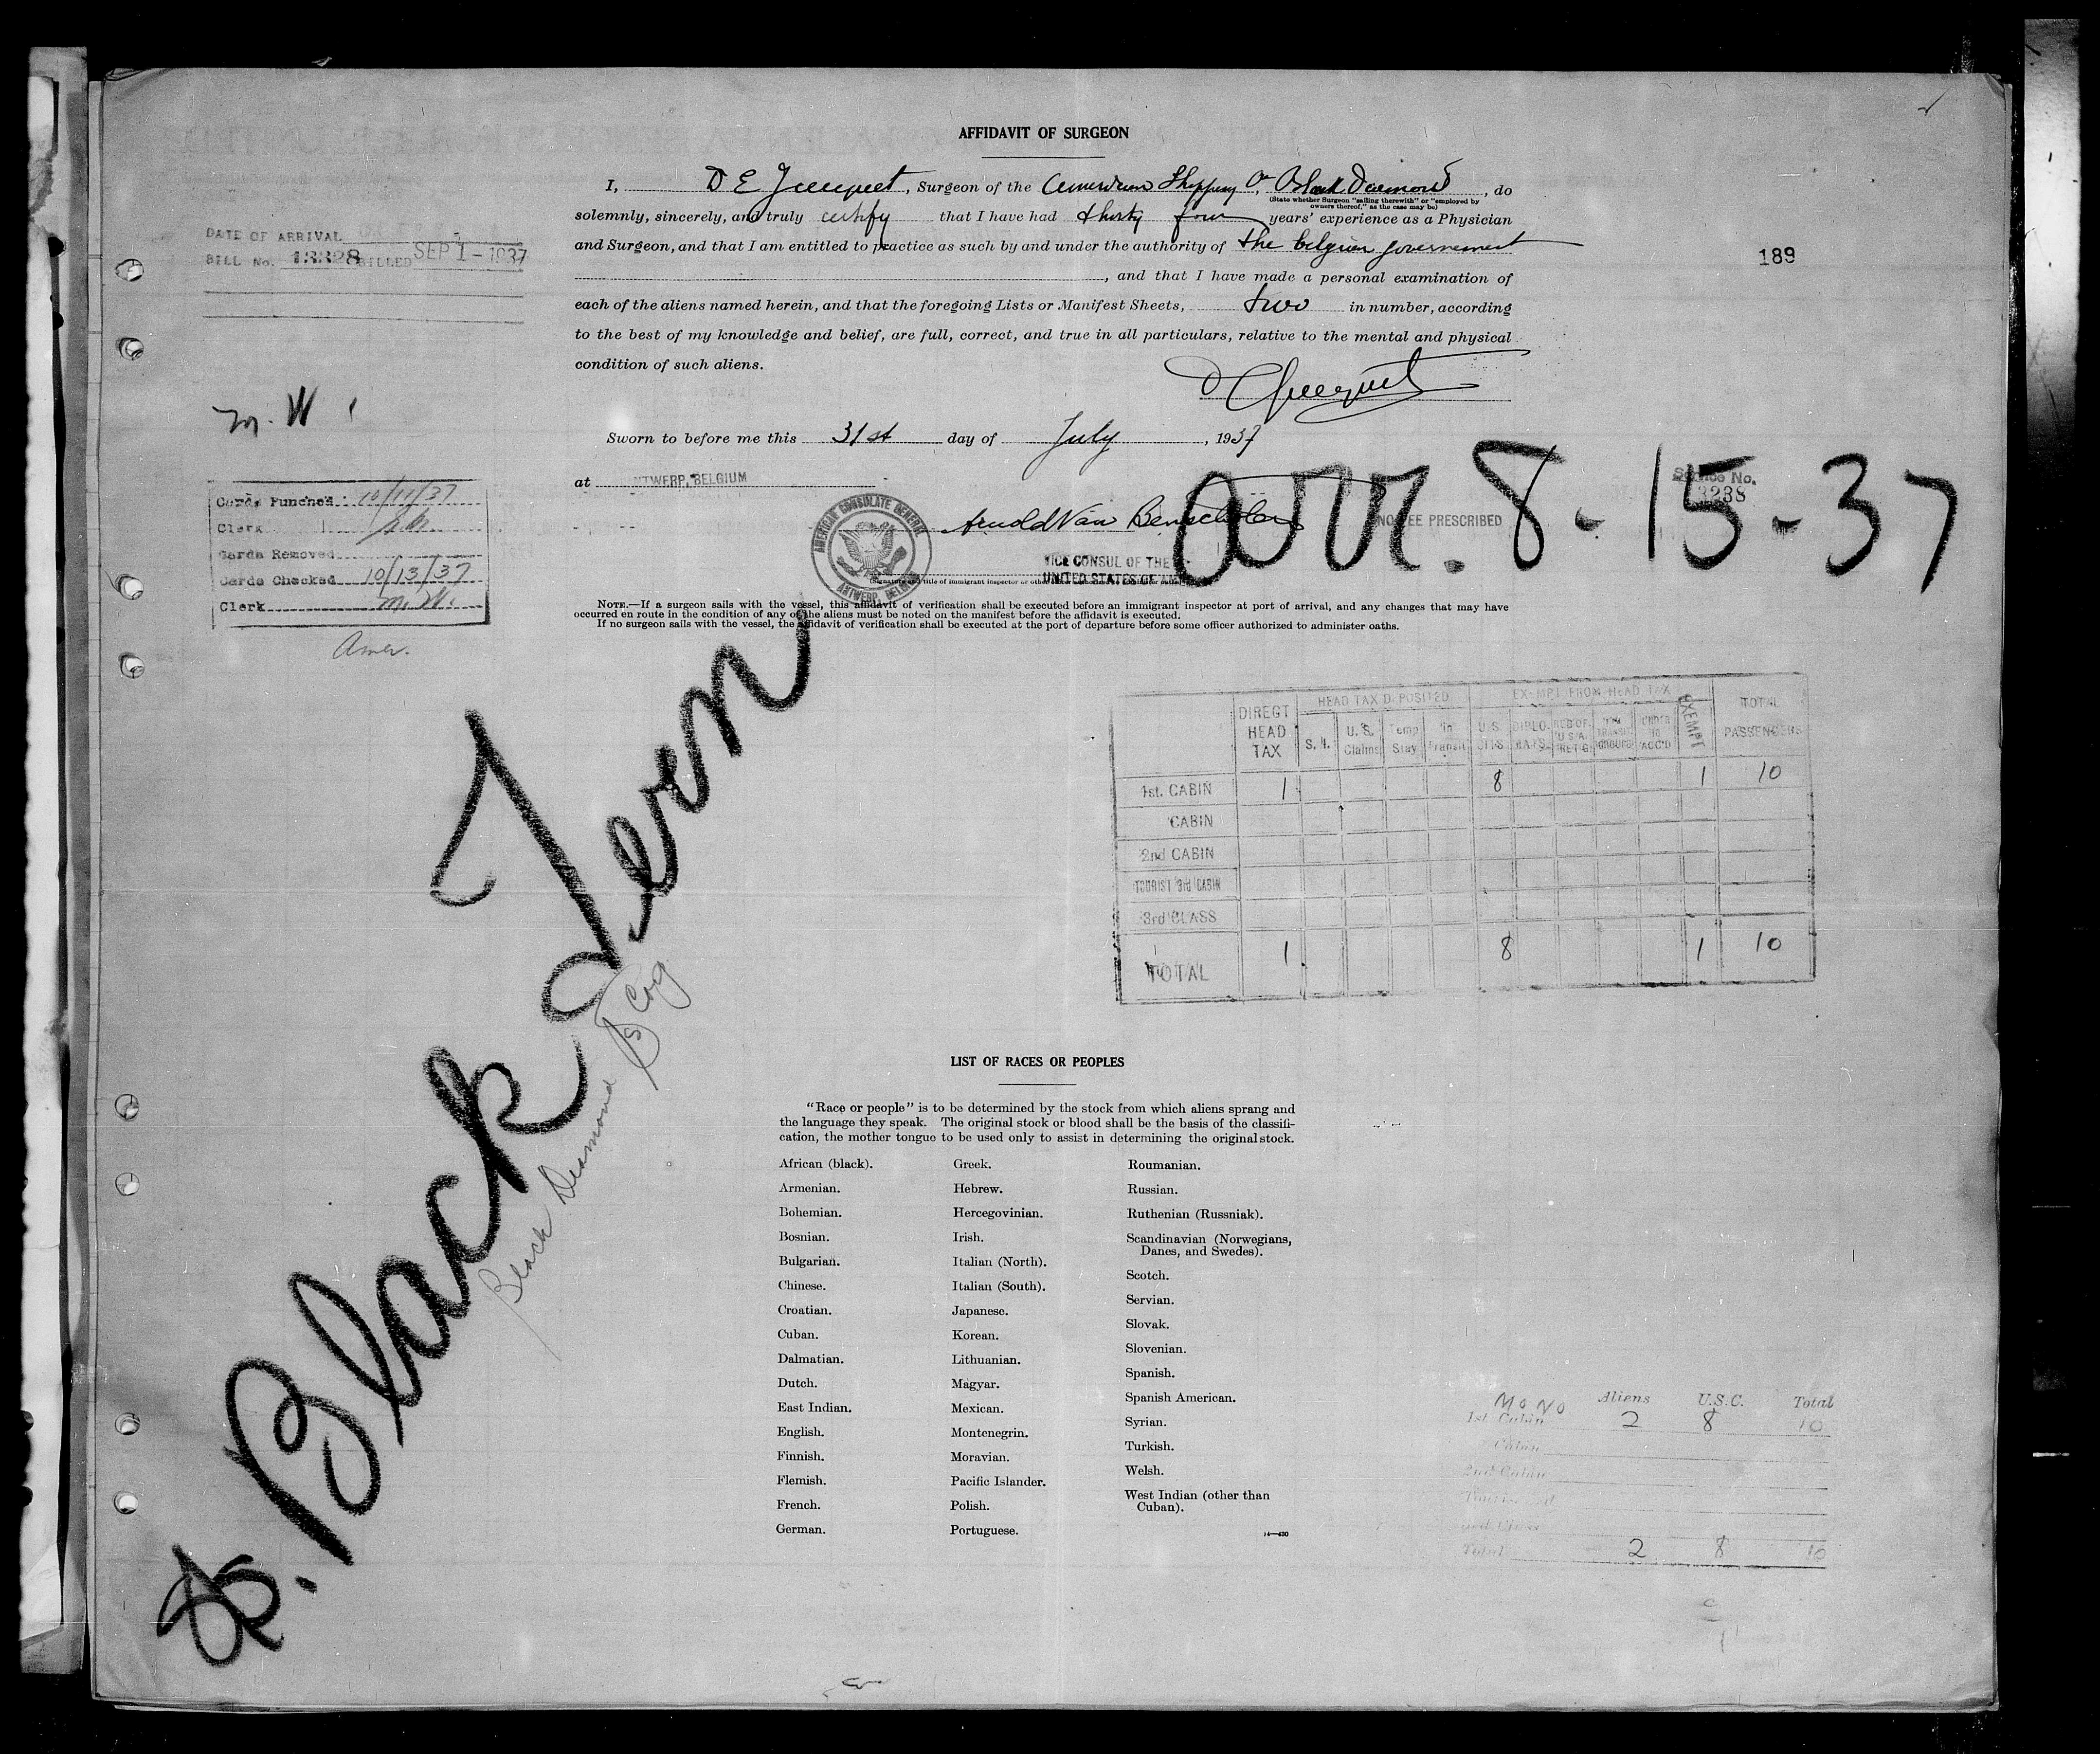 AFFIDAVIT OF SURGEON
I, D E, Surgeon of the American Shipping Co. Black Diamond, do
(State whether Surgeon "sailing therewith" or "employed by
owners thereof," as the case may be)
solemnly, sincerely, and truly certify that I have had thirty four years' experience as a Physician
and Surgeon, and that I am entitled to practice as such by and under the authority of the belgian governement
, and that I have made a personal examination of
each of the aliens named herein, and that the foregoing Lists or Manifest Sheets, two in number, according
to the best of my knowledge and belief, are full, correct, and true in all particulars, relative to the mental and physical
condition of such aliens.
DATE OF ARRIVAL
BILL No. 13328 BILLED SEP 1 - 1937
189
M. W
Sworn to before me this 31st day of July, 1937
at ANTWERP, BELGIUM
AMERICAN CONSULATE GENERAL
ANTWERP, BELGIUM
Arnold Van Benschoten
VICE CONSUL OF THE
UNITED STATES OF AM
NO FEE PRESCRIBED
Service No.
3238
arr. 8-15-37
Cards Punched 10/11/37
Clerk
Cards Removed
Cards Checked 10/13/37
Clerk M. W.
Amer.
NOTE.—If a surgeon sails with the vessel, this affidavit of verification shall be executed before an immigrant inspector at port of arrival, and any changes that may have
occurred en route in the condition of any of the aliens must be noted on the manifest before the affidavit is executed.
If no surgeon sails with the vessel, the affidavit of verification shall be executed at the port of departure before some officer authorized to administer oaths.
SS. Black Tern
Black Diamond
DIRECT HEAD TAX
HEAD TAX DEPOSITED
S. I. U.S. Claims Temp Stay In Transit
EXEMPT FROM HEAD TAX
U.S. CITS. DIPLOMATS. RES OF U.S.A. RETG. UNDER 16 ACC'D EXEMPT
TOTAL PASSENGERS
1st. CABIN 1 8 1 10
CABIN
2nd CABIN
TOURIST 3rd CABIN
3rd CLASS
TOTAL 1 8 1 10
LIST OF RACES OR PEOPLES
"Race or people" is to be determined by the stock from which aliens sprang and
the language they speak. The original stock or blood shall be the basis of the classifi-
cation, the mother tongue to be used only to assist in determining the original stock.
African (black).
Armenian.
Bohemian.
Bosnian.
Bulgarian.
Chinese.
Croatian.
Cuban.
Dalmatian.
Dutch.
East Indian.
English.
Finnish.
Flemish.
French.
German.
Greek.
Hebrew.
Hercegovinian.
Irish.
Italian (North).
Italian (South).
Japanese.
Korean.
Lithuanian.
Magyar.
Mexican.
Montenegrin.
Moravian.
Pacific Islander.
Polish.
Portuguese.
Roumanian.
Russian.
Ruthenian (Russniak).
Scandinavian (Norwegians,
Danes, and Swedes).
Scotch.
Servian.
Slovak.
Slovenian.
Spanish.
Spanish American.
Syrian.
Turkish.
Welsh.
West Indian (other than
Cuban).
14—430
MONO Aliens U.S.C. Total
1st Cabin 2 8 10
Cabin
2nd Cabin
3rd Class
Total 2 8 10